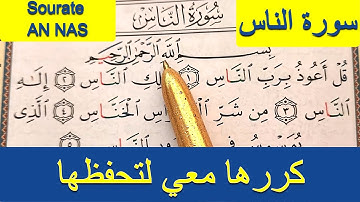 Sourate
AN NAS
سورة الناس
سُورَةُ النَّاسِ
بِسْمِ اللَّهِ الرَّحْمَٰنِ الرَّحِيمِ
قُلْ أَعُوذُ بِرَبِّ النَّاسِ ١ مَلِكِ النَّاسِ ٢ إِلَٰهِ
النَّاسِ ٣ مِن شَرِّ الْخَنَّاسِ ٤ الَّذِي
كررها معي لتحفظها